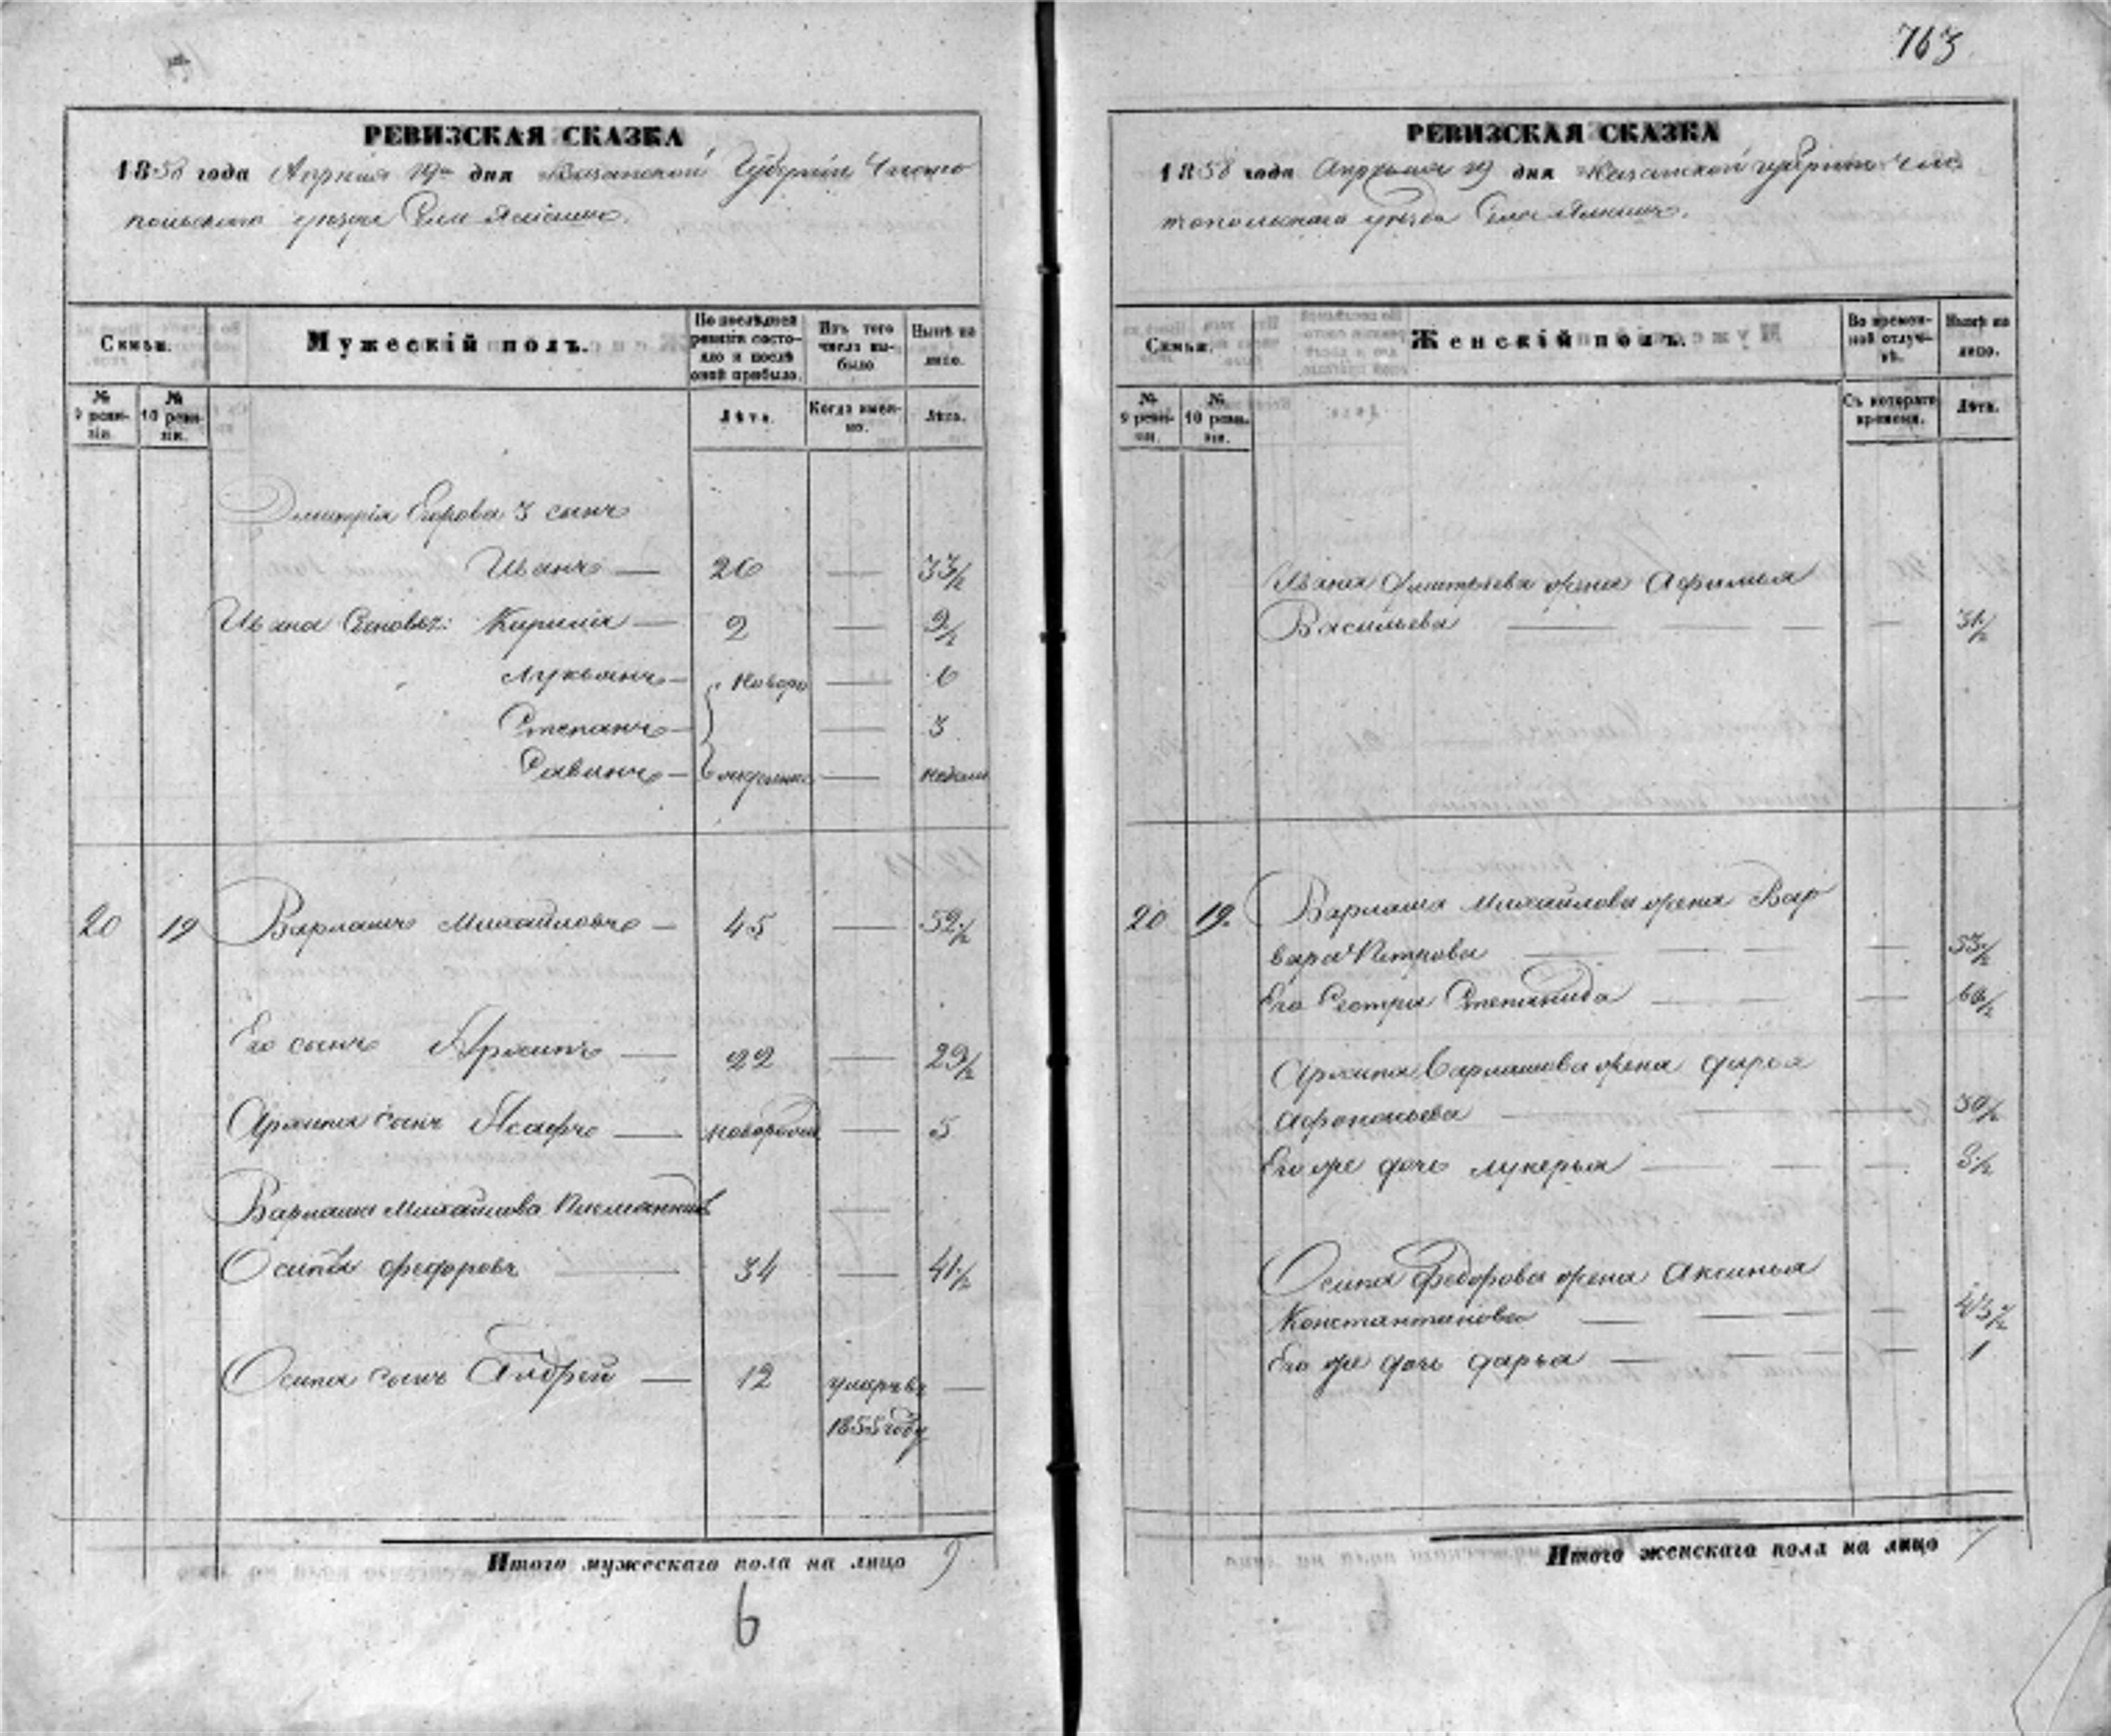 763
РЕВИЗСКАЯ СКАЗКА
1858 года Апреля 19го дня Казанской Губернии Чисто
польскаго уезда Села
Семьи.
Мужескій полъ.
По последней ревизіи состояло и после оной прибыло.
Изъ того числа выбыло
Ныне на лицо.
№ 9 ревизіи.
№ 10 ревизіи.
Лета.
Когда именно.
Лета.
Дмитрія Егорова 3 сынъ
Иванъ — 26 — 33½
Ивана Сыновья: Кирила — 2 — 9½
Лукьянъ — новоро — 6
Степанъ — 3
Саванъ — — недели
20 19 Варламъ Михайловъ — 45 — 52½
Его сынъ Архипъ — 22 — 29½
Архипа сынъ Асафъ — новорожд — 5
Варлама Михайлова Племянникъ —
Осипъ Федоровъ — 34 — 41½
Осипа сынъ Андрей — 12 умеръ въ —
1855 году
Итого мужескаго пола на лицо 9
6
РЕВИЗСКАЯ СКАЗКА
1858 года Апреля 19 дня Казанской губерніи Чис
топольскаго уезда Села
Семьи.
Женскій полъ.
Во временной отлучке.
Ныне на лицо.
№ 9 ревизіи.
№ 10 ревизіи.
Съ котораго времени.
Лета.
Ивана Дмитріева жена Афимья
Васильева — — — — 31½
20 19. Варлама Михайлова жена Вар
вара Петрова — — — — 53½
Его Сестра Степанида — — — 60½
Архипа Варламова жена Дарья
Афонасьева — — — 30½
Его же дочь Лукерья — — — 8½
Осипа Федорова жена Аксинья
Константинова — — — — 43½
Его же дочь Дарья — — — — 1
Итого женскаго пола на лицо 7